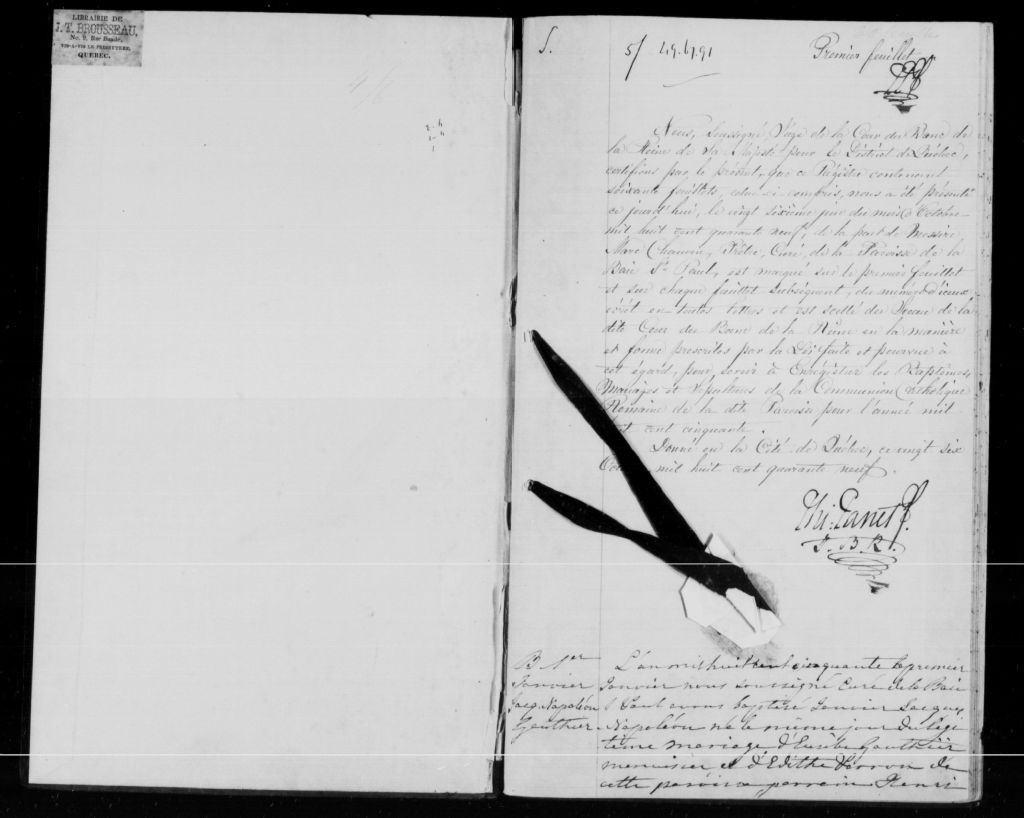 LIBRAIRIE DE
J. T. BROUSSEAU,
No. 9, Rue Buade,
VIS-A-VIS LE PRESBYTERE,
QUEBEC.
S.
5/ 49.67.91
Premier feuillet
Nous, Soussigné Juge de la Cour du Banc de
la Reine de Sa Majesté pour le District de Québec,
certifions par le présent, que ce Régistre contenant
soixante feuillets, celui-ci compris, nous a été présenté
ce jourd'hui, le vingt sixième jour du mois d'Octobre
mil huit cent quarante neuf, de la part de Messire
Marc Chauvin, Prêtre, Curé, de la Paroisse de la
Baie St Paul, est marqué sur le premier feuillet
et sur chaque feuillet subséquent, du numéro d'iceux
écrit en toutes lettres et est scellé du Sceau de la
dite Cour du Banc de la Reine en la manière
et forme prescrites par la Loi faite et pourvue à
cet égard, pour servir à Enrégistrer les Baptêmes,
Mariages et Sépultures de la Communion Catholique
Romaine de la dite Paroisse pour l'année mil
huit cent cinquante.
Donné en la Cité de Québec, ce vingt six
mil huit cent quarante neuf.
Panet
J. B. R.
B 1er
Janvier
Jacq. Napoléon
Gauthier
L'an mil huit cent cinquante le premier
Janvier nous soussigné Curé de la Baie
St Paul avons baptisé Janvier Jacques
Napoléon né le même jour du légi
time mariage d'Eusèbe Gauthier
menuisier et d'Edithe de
cette paroisse parrain Henri